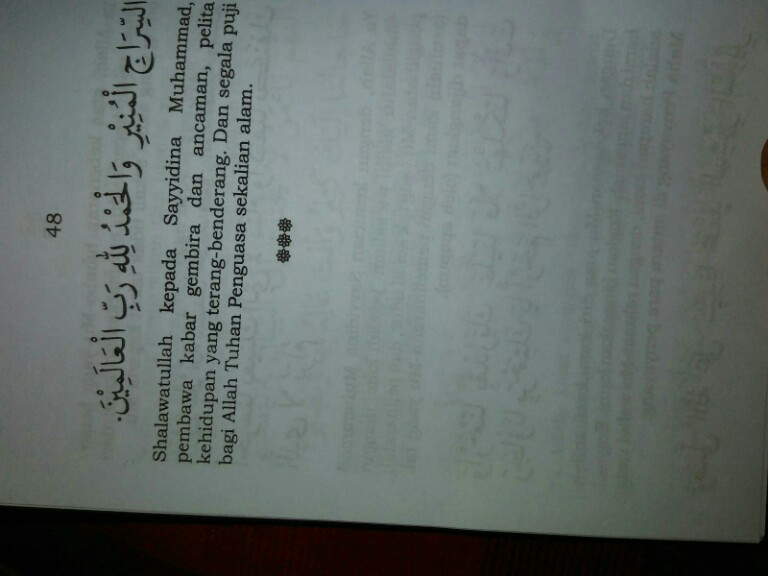 48
السِّرَاجِ الْمُنِيْرِ وَالْحَمْدُ لِلّٰهِ رَبِّ الْعَالَمِيْنَ.
Shalawatullah kepada Sayyidina Muhammad,
pembawa kabar gembira dan ancaman, pelita
kehidupan yang terang-benderang. Dan segala puji
bagi Allah Tuhan Penguasa sekalian alam.